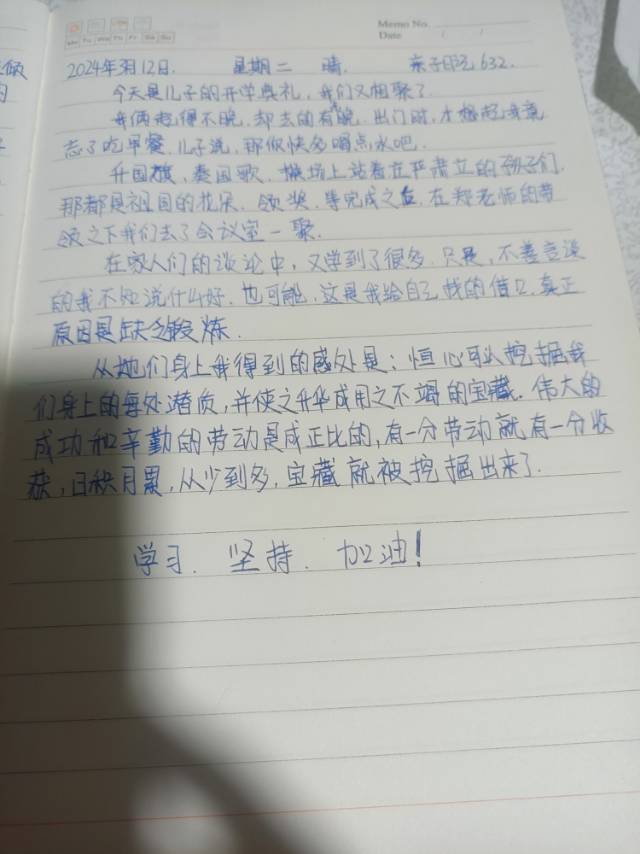 Memo No.
Mo Tu We Th Fr Sa Su
Date / /
2024年3月12日. 星期二 晴. 亲子日记632.
今天是儿子的开学典礼,我们又相聚了.
我俩起得不晚,却去的有晚,出门时,才想起来竟
忘了吃早餐,儿子说,那你快多喝点水吧.
升国旗,奏国歌,操场上站着庄严肃立的孩子们,
那都是祖国的花朵.领奖,等完成之后,在郑老师的带
领之下我们去了会议室一聚.
在家人们的谈论中,又学到了很多.只是,不善言谈
的我不知说什么好.也可能,这是我给自己找的借口.真正
原因是缺乏锻炼.
从她们身上我得到的感处是:恒心可以挖掘我
们身上的每处潜质,并使之升华成用之不竭的宝藏.伟大的
成功和辛勤的劳动是成正比的,有一分劳动就有一分收
获,日积月累,从少到多,宝藏就被挖掘出来了.
学习.坚持.加油!